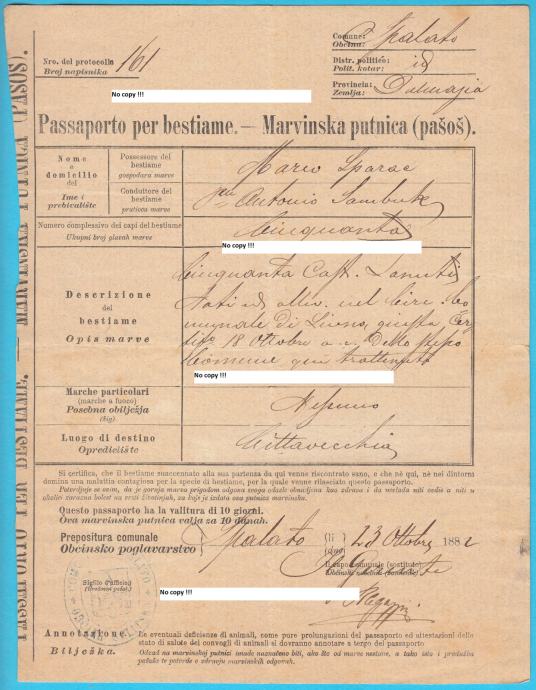 Nro. del protocollo
Broj napisnika
161
Comune:
Obćina:
Spalato
Distr. politico:
Polit. kotar:
id
Provincia:
Zemlja:
Dalmazia
No copy !!!
Passaporto per bestiame. — Marvinska putnica (pašoš).
Nome
e
domicilio
del
Ime i
prebivalište
Possessore del
bestiame
gospodara marve
Marco Sparac
Conduttore del
bestiame
pratioca marve
Antonio Sambuk
Numero complessivo dei capi del bestiame
Ukupni broj glavah marve
Cinquanta
No copy !!!
Descrizione
del
bestiame
Opis marve
Cinquanta Cast. Lanuti
nati ed allev. nel Circ. Co
munale di giusta Cer
tif. 18 Ottobre a.c. Dello stesso
Comune qui trattenuto
No copy !!!
Marche particolari
(marche a fuoco)
Posebna obilježja
(žig)
Nessuno
Luogo di destino
Opredielište
Cittavecchia
Si certifica, che il bestiame suaccennato alla sua partenza da qui venne riscontrato sano, e che nè qui, nè nei dintorni
domina una malattia contagiosa per la specie di bestiame, per la quale venne rilasciato questo passaporto.
Potvrdjuje se ovim, da je gornja marva prigodom odgona svoga odavle obnadjena kao zdrava i da nevlada niti ovdie a niti u
okolici zarazna bolest na vrsti životinjah, za koje je izdata ova marvinska putnica.
Questo passaporto ha la valitura di 10 giorni.
Ova marvinska putnica valja za 10 danah.
Prepositura comunale
Obćinsko poglavarstvo
Spalato
(li
(dne
23 Ottobre 1882
Il capo comunale (sostituto)
Obćinski načelnik (zamienik)
Sigillo d'ufficio
(Uredovni pečat)
No copy !!!
Annotazione.
Bilježka.
Le eventuali deficienze di animali, come pure prolungazioni del passaporto ed attestazioni dello
stato di salute dei convogli di animali si dovranno annotare a tergo del passaporto
Odzad na marvinskoj putnici imade naznačeno biti, ako što od marve nestane, a tako isto i produžba
pašoša te potvrde o zdravju marvinskih odgonah.